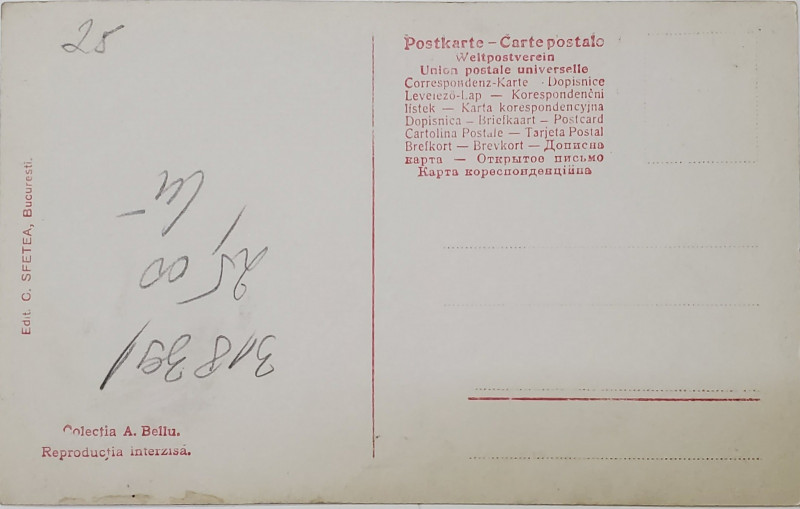 25
Postkarte – Carte postalo
Weltpostverein
Union postale universelle
Correspondenz-Karte - Dopisnice
Levelező-Lap — Korespondenční
lístek — Karta korespondencyjna
Dopisnica – Briefkaart – Postcard
Cartolina Postale – Tarjeta Postal
Brefkort – Brevkort – Дописна
карта — Открытое письмо
Карта кореспонденційна
Edit. C. SFETEA, Bucuresti.
25,00
318391
Colecția A. Bellu.
Reproducția interzisă.